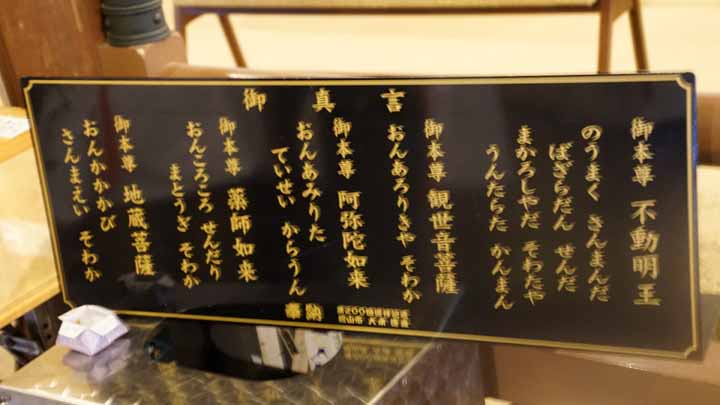 御真言
御本尊 不動明王
のうまく さんまんだ
ばざらだん せんだ
まかろしやだ そわたや
うんたらた かんまん
御本尊 観世音菩薩
おんあろりきや そわか
御本尊 阿弥陀如来
おんあみりた
ていせい からうん
御本尊 薬師如来
おんころころ せんだり
まとうぎ そわか
御本尊 地蔵菩薩
おんかかかび
さんまえい そわか
奉納